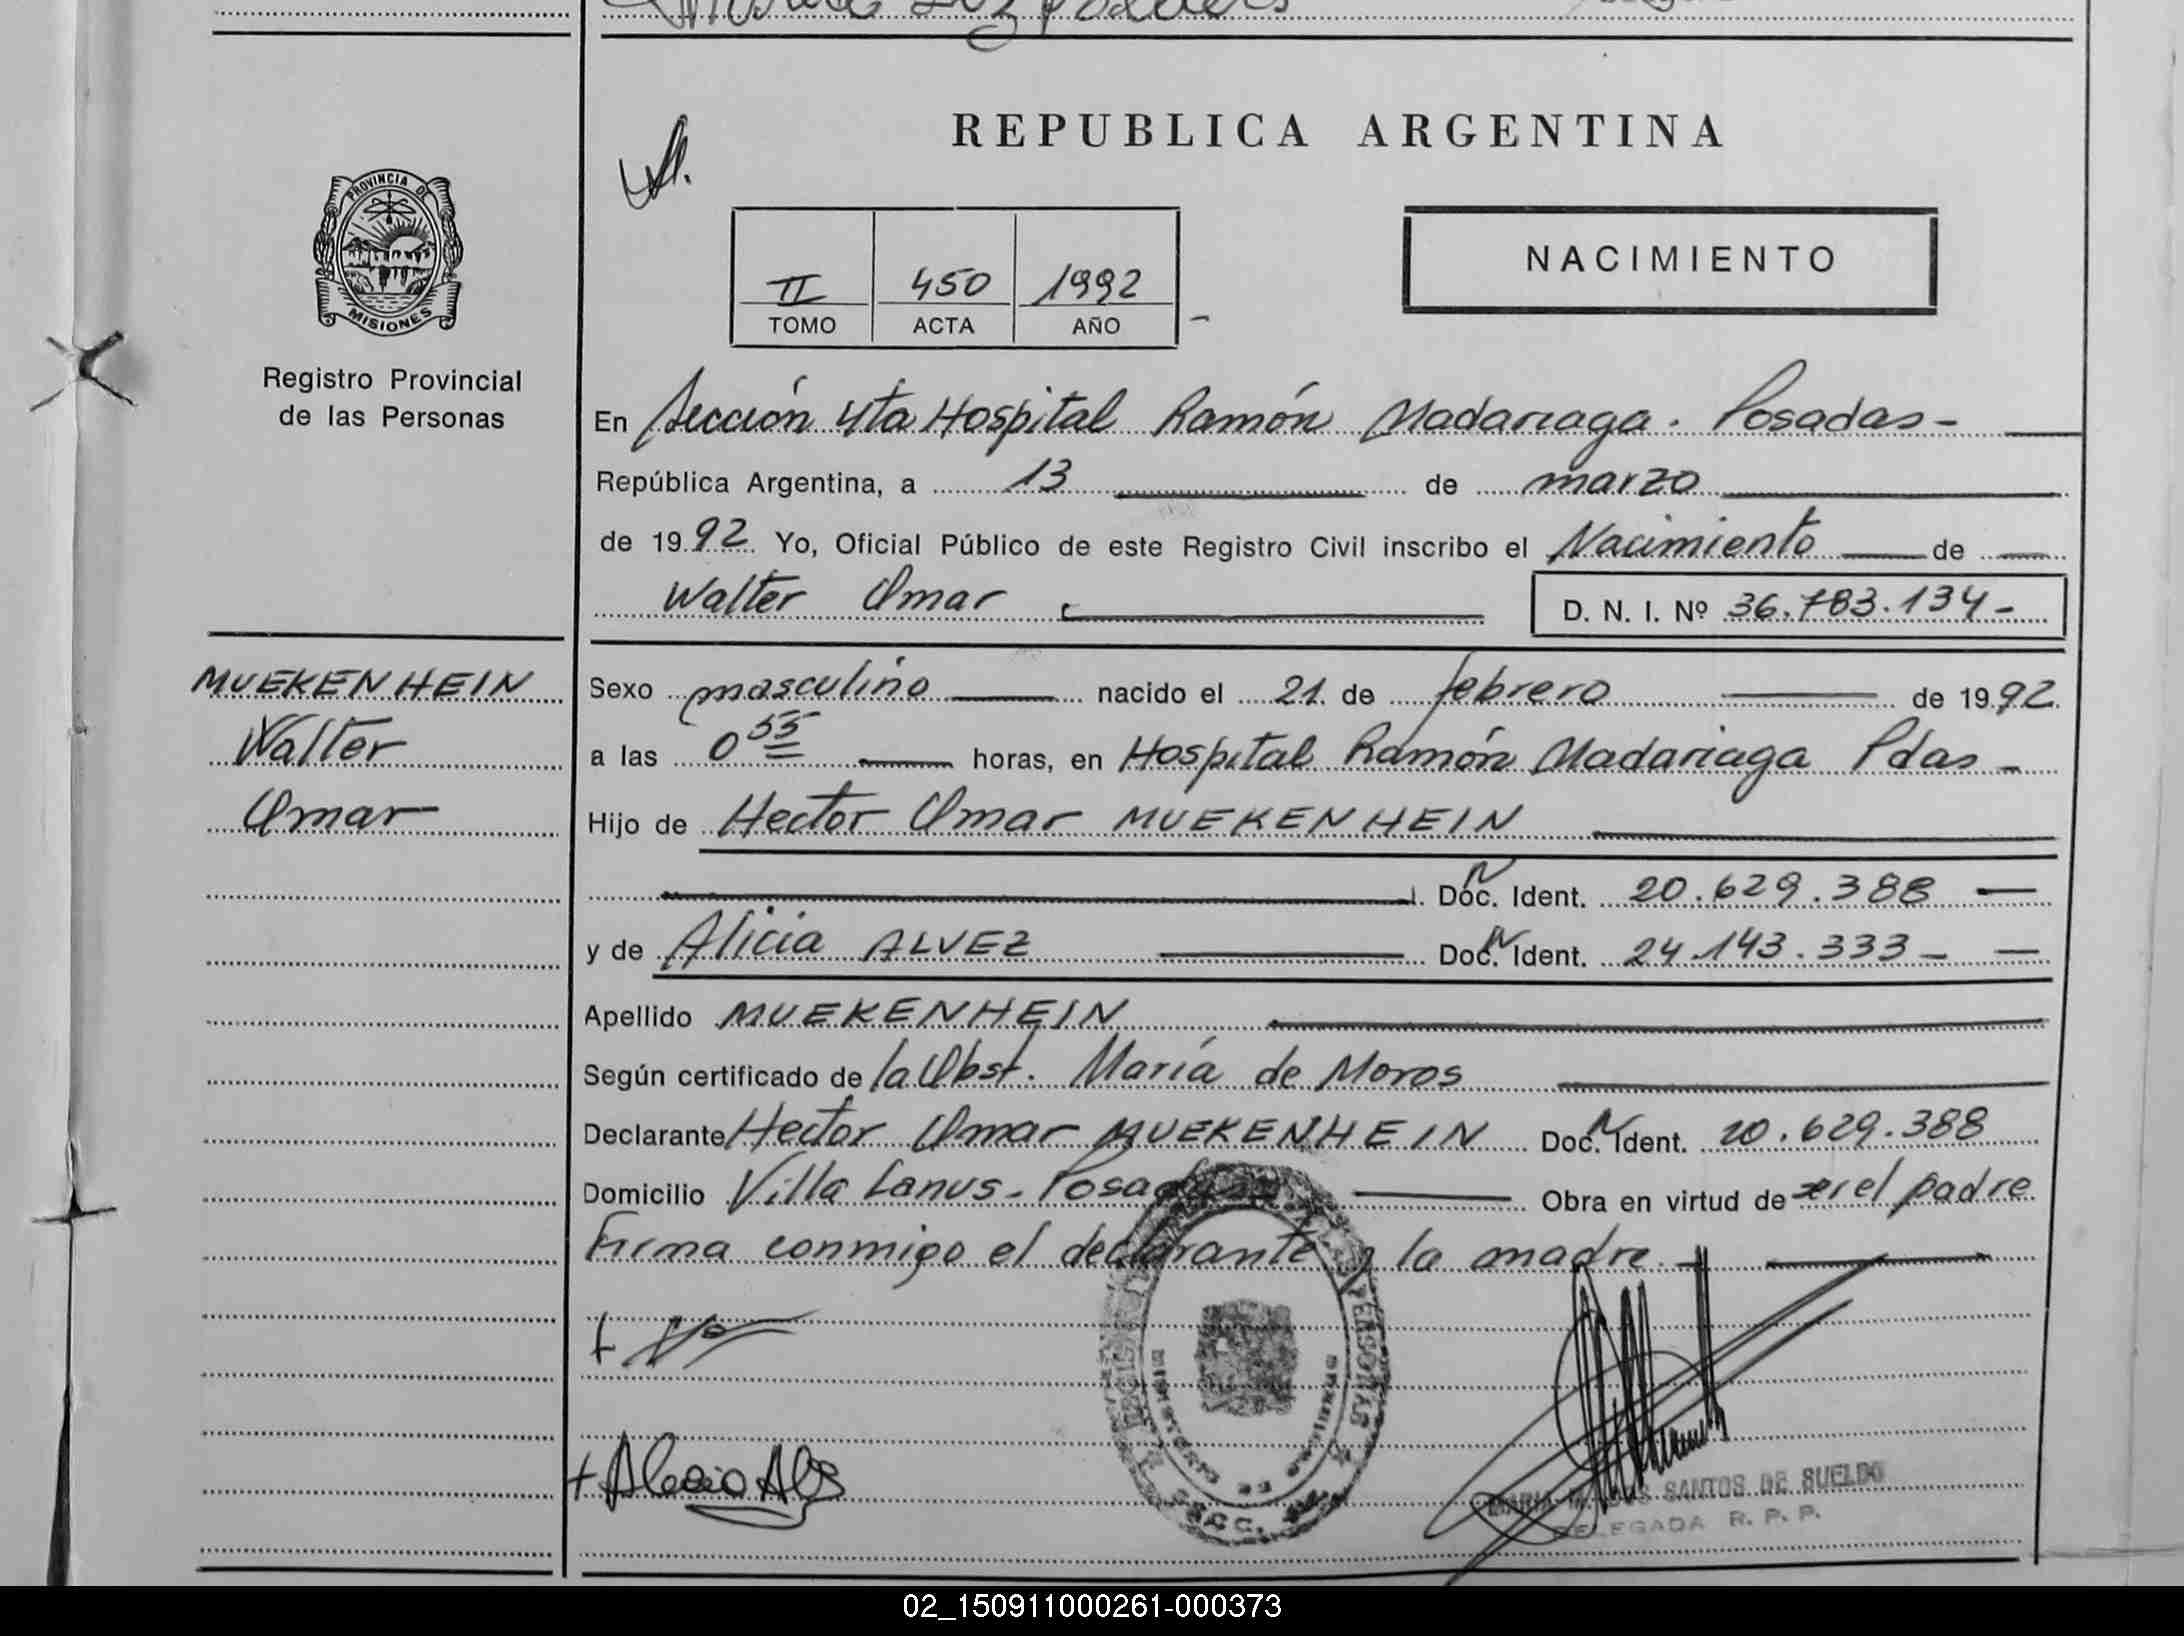 REPUBLICA ARGENTINA
PROVINCIA DE
MISIONES
Registro Provincial
de las Personas
II 450 1992
TOMO ACTA AÑO
NACIMIENTO
En Sección 4ta Hospital Ramón Madariaga. Posadas-
República Argentina, a 13 de marzo
de 1992 Yo, Oficial Público de este Registro Civil inscribo el Nacimiento de
Walter Omar
D. N. I. Nº 36.783.134-
MUEKENHEIN
Walter
Omar
Sexo masculino nacido el 21 de febrero de 1992
a las 0 55 horas, en Hospital Ramón Madariaga Pdas -
Hijo de Hector Omar MUEKENHEIN
Doc. Ident. 20.629.388
y de Alicia ALVEZ Doc. Ident. 24.143.333-
Apellido MUEKENHEIN
Según certificado de la Obst. María de Moros
Declarante Hector Omar MUEKENHEIN Doc. Ident. 20.629.388
Domicilio Villa Lanus - Posadas Obra en virtud de ser el padre
Firma conmigo el declarante y la madre.-
PERSONAS
SECC.
SANTOS DE SUELDO
DELEGADA R. P. P.
02_150911000261-000373